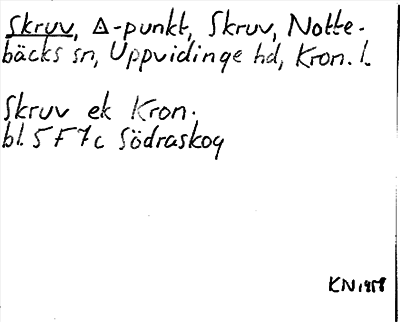 Skruv, Δ-punkt, Skruv, Notte-
bäcks sn, Uppvidinge hd, Kron. l.
Skruv ek Kron.
bl. 5 F 7 c Södraskog
KN 1958